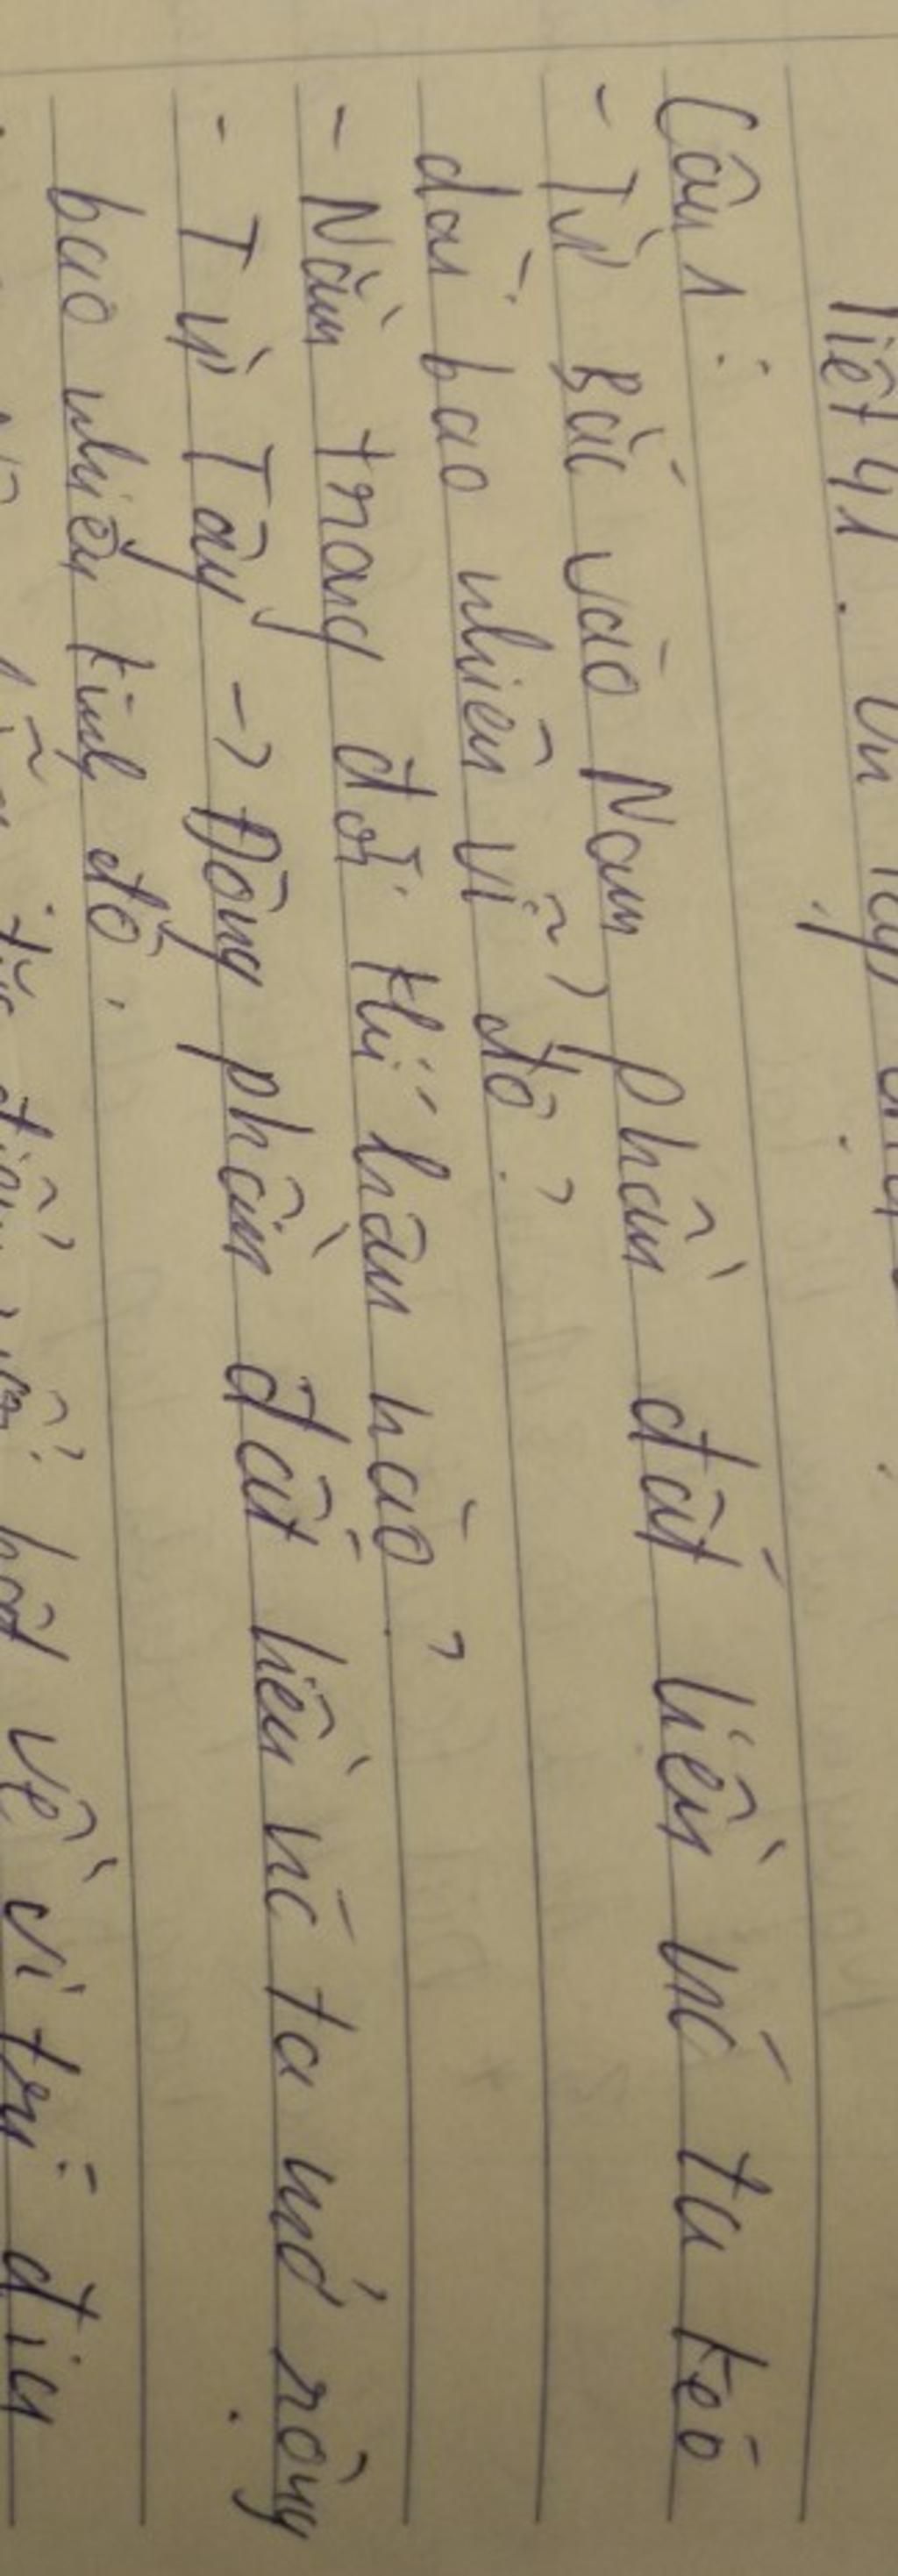 Tiết 41. Ôn tập
Câu 1:
- Từ Bắc vào Nam, phần đất liền nc ta kéo
dài bao nhiêu vĩ độ?
- Nằm trong đới khí hậu nào?
- Từ Tây -> Đông phần đất liền nc ta mở rộng
bao nhiêu kinh độ.
điểm nổi bật về vị trí địa